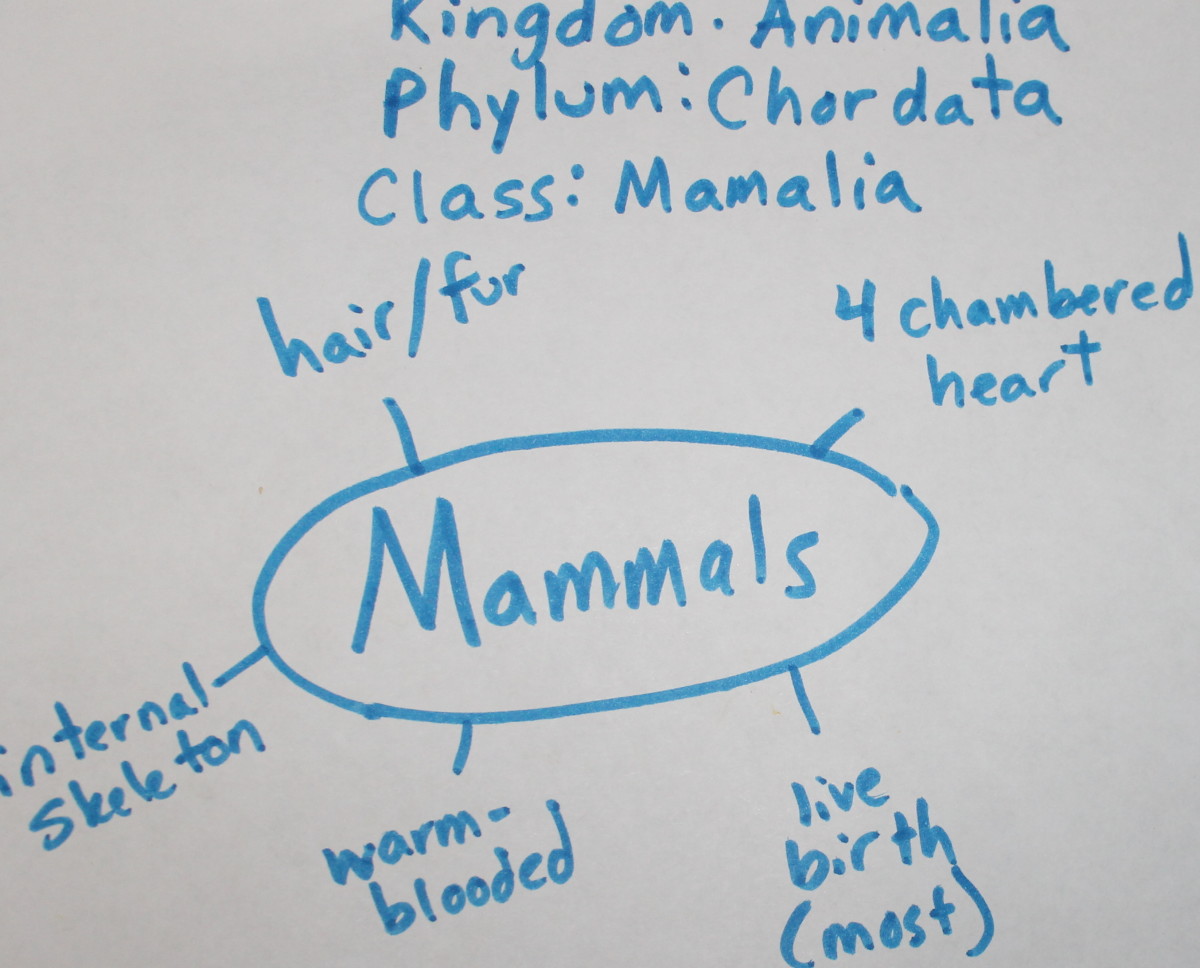 Kingdom: Animalia
Phylum: Chordata
Class: Mamalia
hair/fur
4 chambered
heart
Mammals
internal
skeleton
warm-
blooded
live
birth
(most)